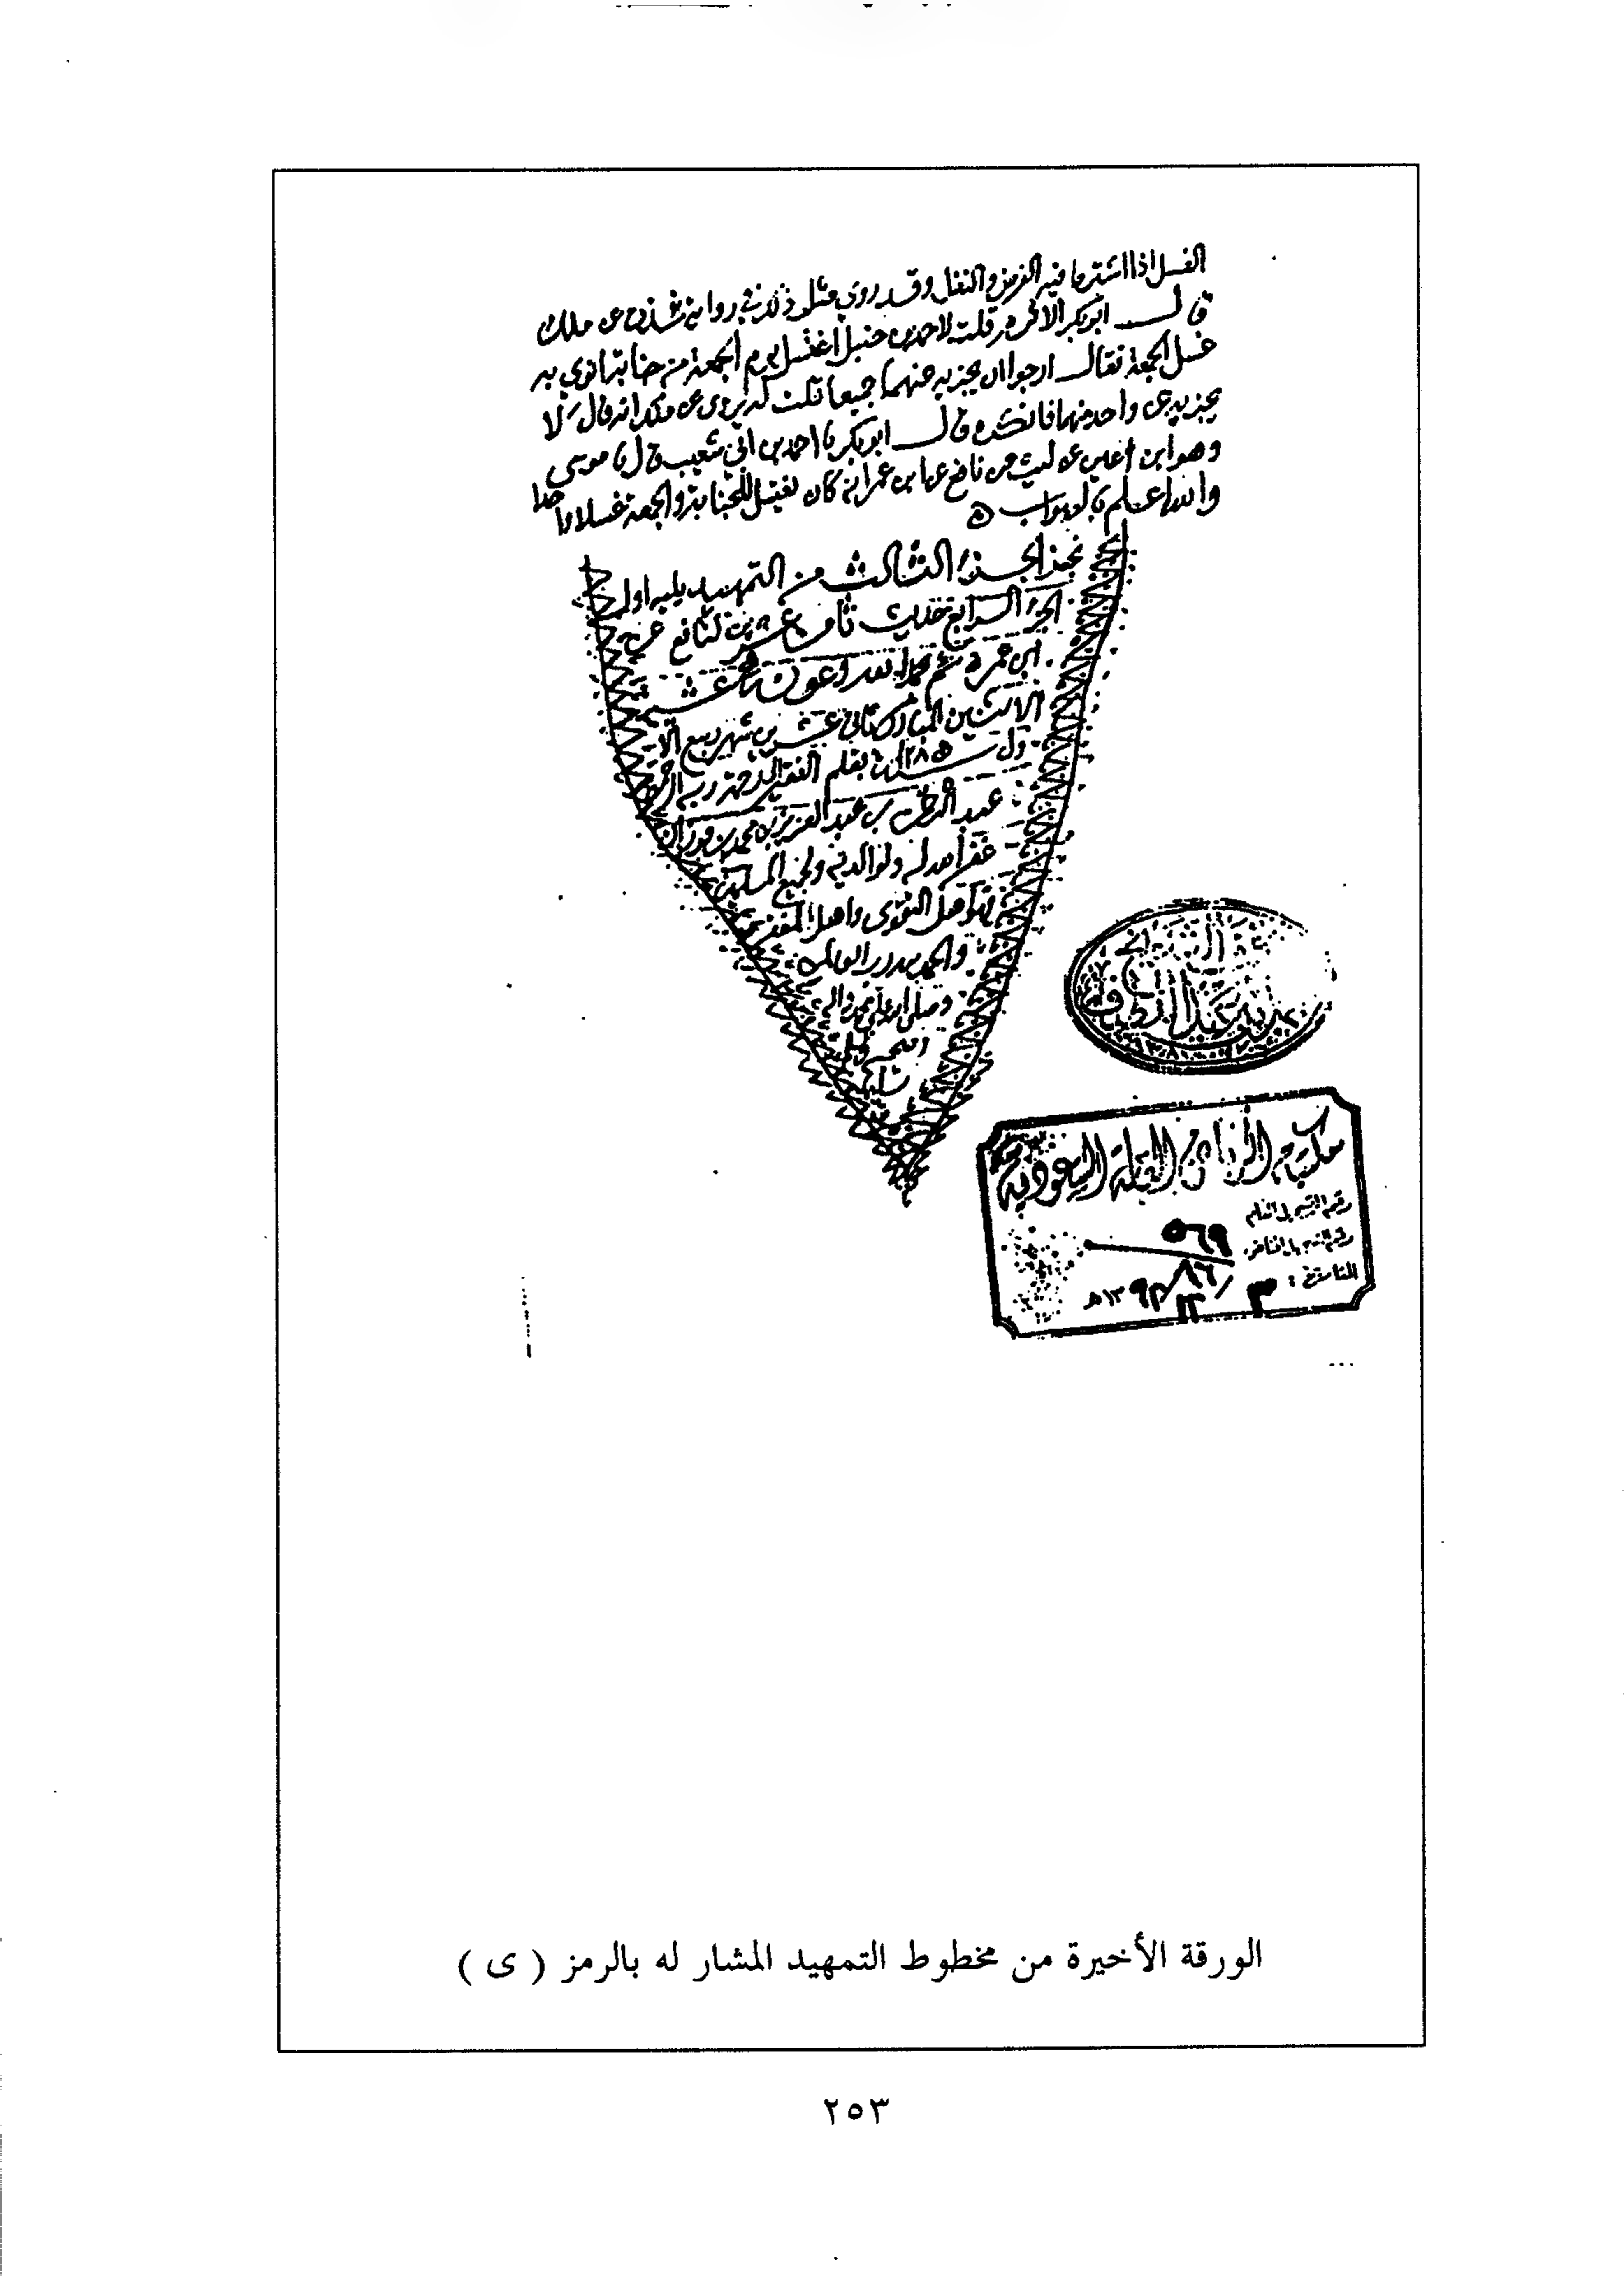 الغسل اذا اشترك فيه الفرض والنفل وقد روي مثل ذلك في رواية شذت عن ملك
قال ابو بكر الاثرم قلت لاحمد بن حنبل اغتسل يوم الجمعة من جنابة نوي به
غسل الجمعة فقال ارجوا ان يجزيه عنهما جميعا قلت له يروى عن ملك انه قال لا
يجزيه عن واحد منهما فانكره قال ابو بكر نا احمد بن ابي شعيب قال نا موسى
وهو ابن اعين عن ليث عن نافع عن ابن عمر انه كان يغتسل للجنابة والجمعة غسلا واحدا
والله اعلم بالصواب ه
نجز الجزء الثالث من التمهيد يليه اول
الجزء الرابع حديث ثامن عشرين لنافع عن
ابن عمر تم بحمد الله وعونه
الاثنين المبارك ثاني عشرين شهر ربيع الا
ول ١٢٨٥ بقلم الفقير الى رحمة ربه
عبد الرحمن بن عبد العزيز بن محمد بن
غفر الله له ولوالديه ولجميع المسلمين
اهل التقوى واهل المغفرة
والحمد لله رب العالمين
وصلى الله على محمد واله
وصحبه وسلم
مكتبة الرياض السعودية
رقم التسجيل العام
رقم التسجيل الخاص ٥٦٩
٨٦
التاريخ : ١٣٩٢ هـ
الورقة الأخيرة من مخطوط التمهيد المشار له بالرمز ( ى )
٢٥٣